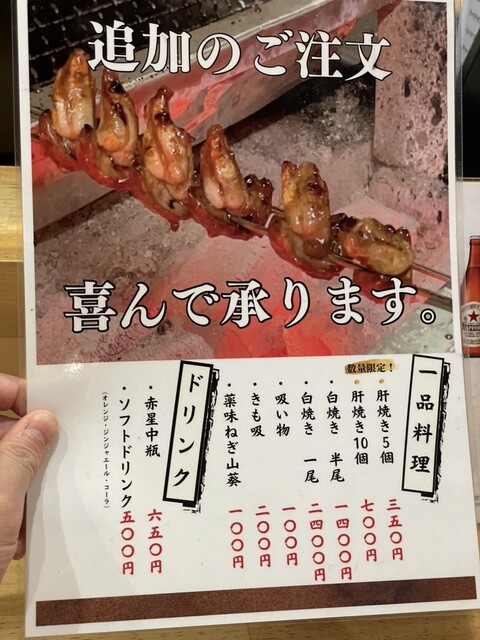 追加のご注文
喜んで承ります。
一品料理
数量限定!
・肝焼き5個 三五〇円
・肝焼き10個 七〇〇円
・白焼き 半尾 一四〇〇円
・白焼き 一尾 二四〇〇円
・吸い物 一〇〇円
・きも吸 二〇〇円
・薬味ねぎ山葵 一〇〇円
ドリンク
・赤星中瓶 六五〇円
・ソフトドリンク 五〇〇円
(オレンジ・ジンジャエール・コーラ)